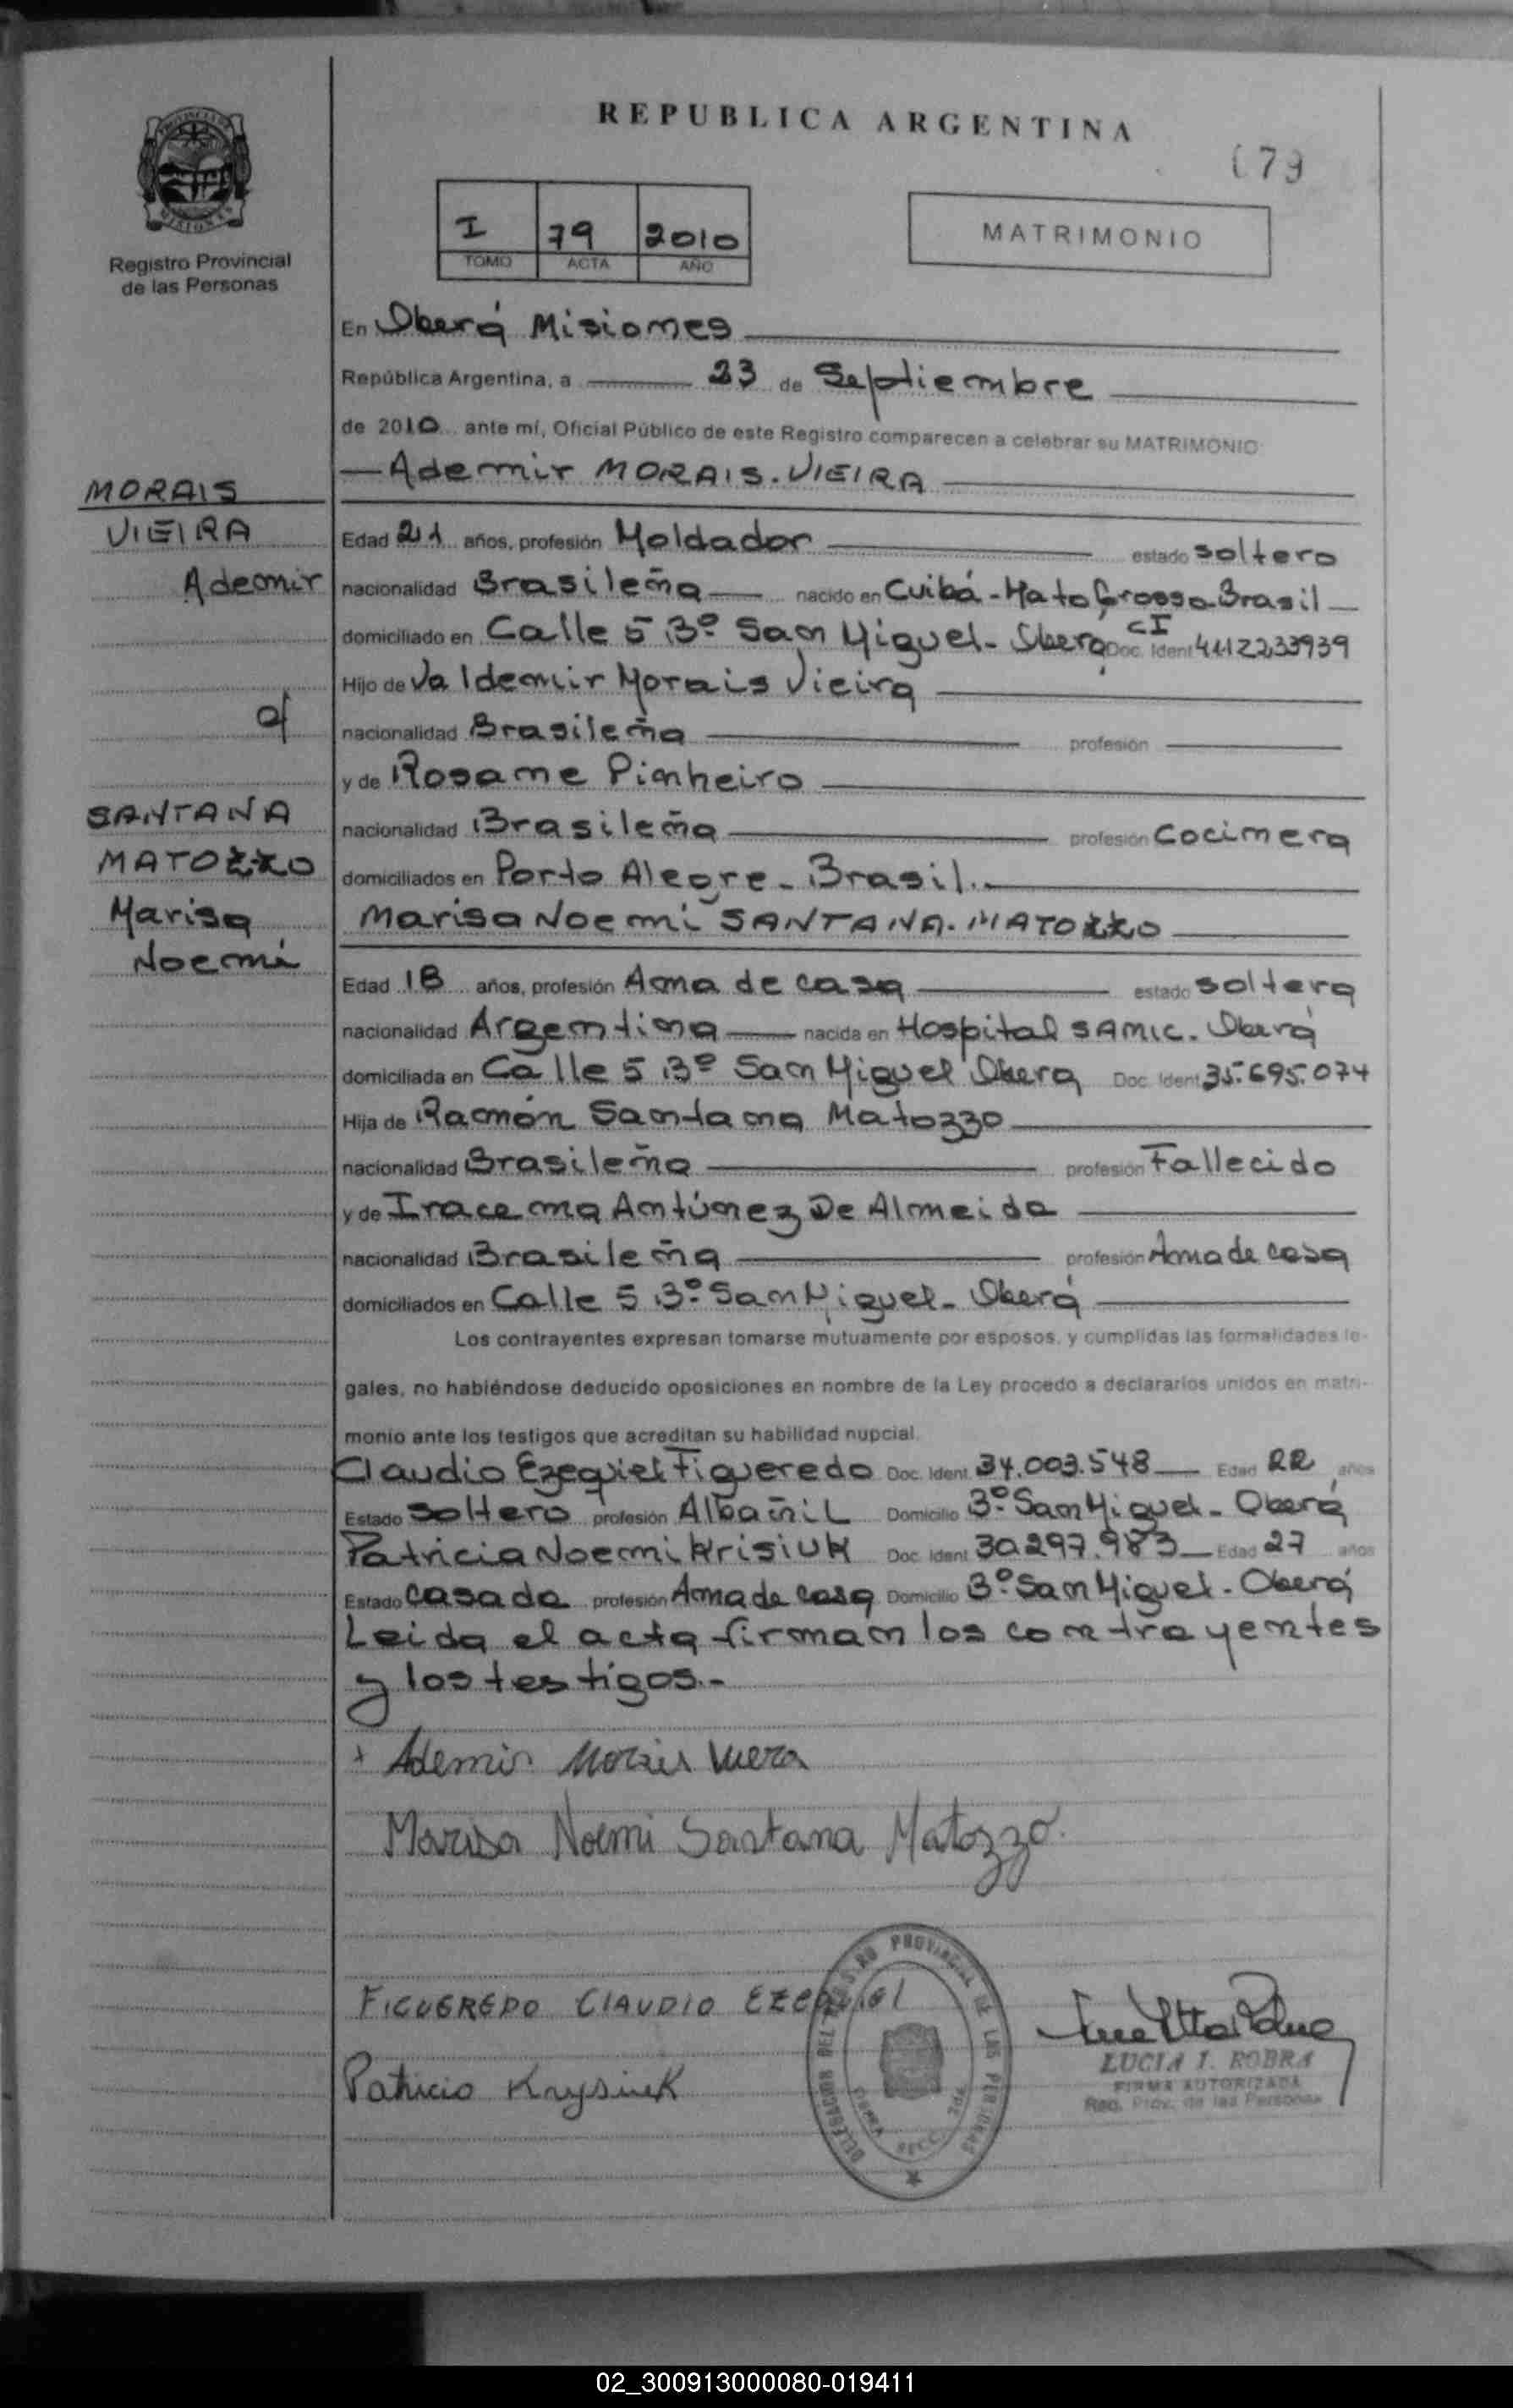 REPUBLICA ARGENTINA
79
Registro Provincial
de las Personas
I 79 2010
TOMO ACTA AÑO
MATRIMONIO
En Oberá Misiones
República Argentina, a 23 de Septiembre
de 2010 ante mí, Oficial Público de este Registro comparecen a celebrar su MATRIMONIO
Ademir MORAIS. VIEIRA
MORAIS
VIEIRA
Ademir
Edad 21 años, profesión Moldador estado soltero
nacionalidad Brasileña nacido en Cuibá - Mato Grosso - Brasil
domiciliado en Calle 5 Bº San Miguel - Oberá Doc. Ident CI 4112233939
Hijo de Valdemir Morais Vieira
nacionalidad Brasileña profesión
y de Rosane Pinheiro
nacionalidad Brasileña profesión Cocinera
domiciliados en Porto Alegre - Brasil.
c/
SANTANA
MATOZZO
Marisa
Noemí
Marisa Noemí SANTANA. MATOZZO
Edad 18 años, profesión Ama de casa estado soltera
nacionalidad Argentina nacida en Hospital SAMIC. Oberá
domiciliada en Calle 5 Bº San Miguel Oberá Doc. Ident 35.695.074
Hija de Ramón Santana Matozzo
nacionalidad Brasileña profesión Fallecido
y de Iracema Antúnez De Almeida
nacionalidad Brasileña profesión Ama de casa
domiciliados en Calle 5 Bº San Miguel - Oberá
Los contrayentes expresan tomarse mutuamente por esposos, y cumplidas las formalidades le-
gales, no habiéndose deducido oposiciones en nombre de la Ley procedo a declararlos unidos en matri-
monio ante los testigos que acreditan su habilidad nupcial.
Claudio Ezequiel Figueredo Doc. Ident. 34.003.548 Edad 22 años
Estado soltero profesión Albañil Domicilio Bº San Miguel - Oberá
Patricia Noemi Krisiuk Doc. Ident 30297.983 Edad 27 años
Estado casada profesión Ama de casa Domicilio Bº San Miguel - Oberá
Leida el acta firman los contrayentes
y los testigos.-
Ademir Morais Vieira
Marisa Noemi Santana Matozzo
FIGUEREDO CLAUDIO EZEQUIEL
Patricia Krysiuk
DELEGACION DEL REGISTRO PROVINCIAL DE LAS PERSONAS
LUCIA I. ROBRA
FIRMA AUTORIZADA
Reg. Prov. de las Personas
02_300913000080-019411